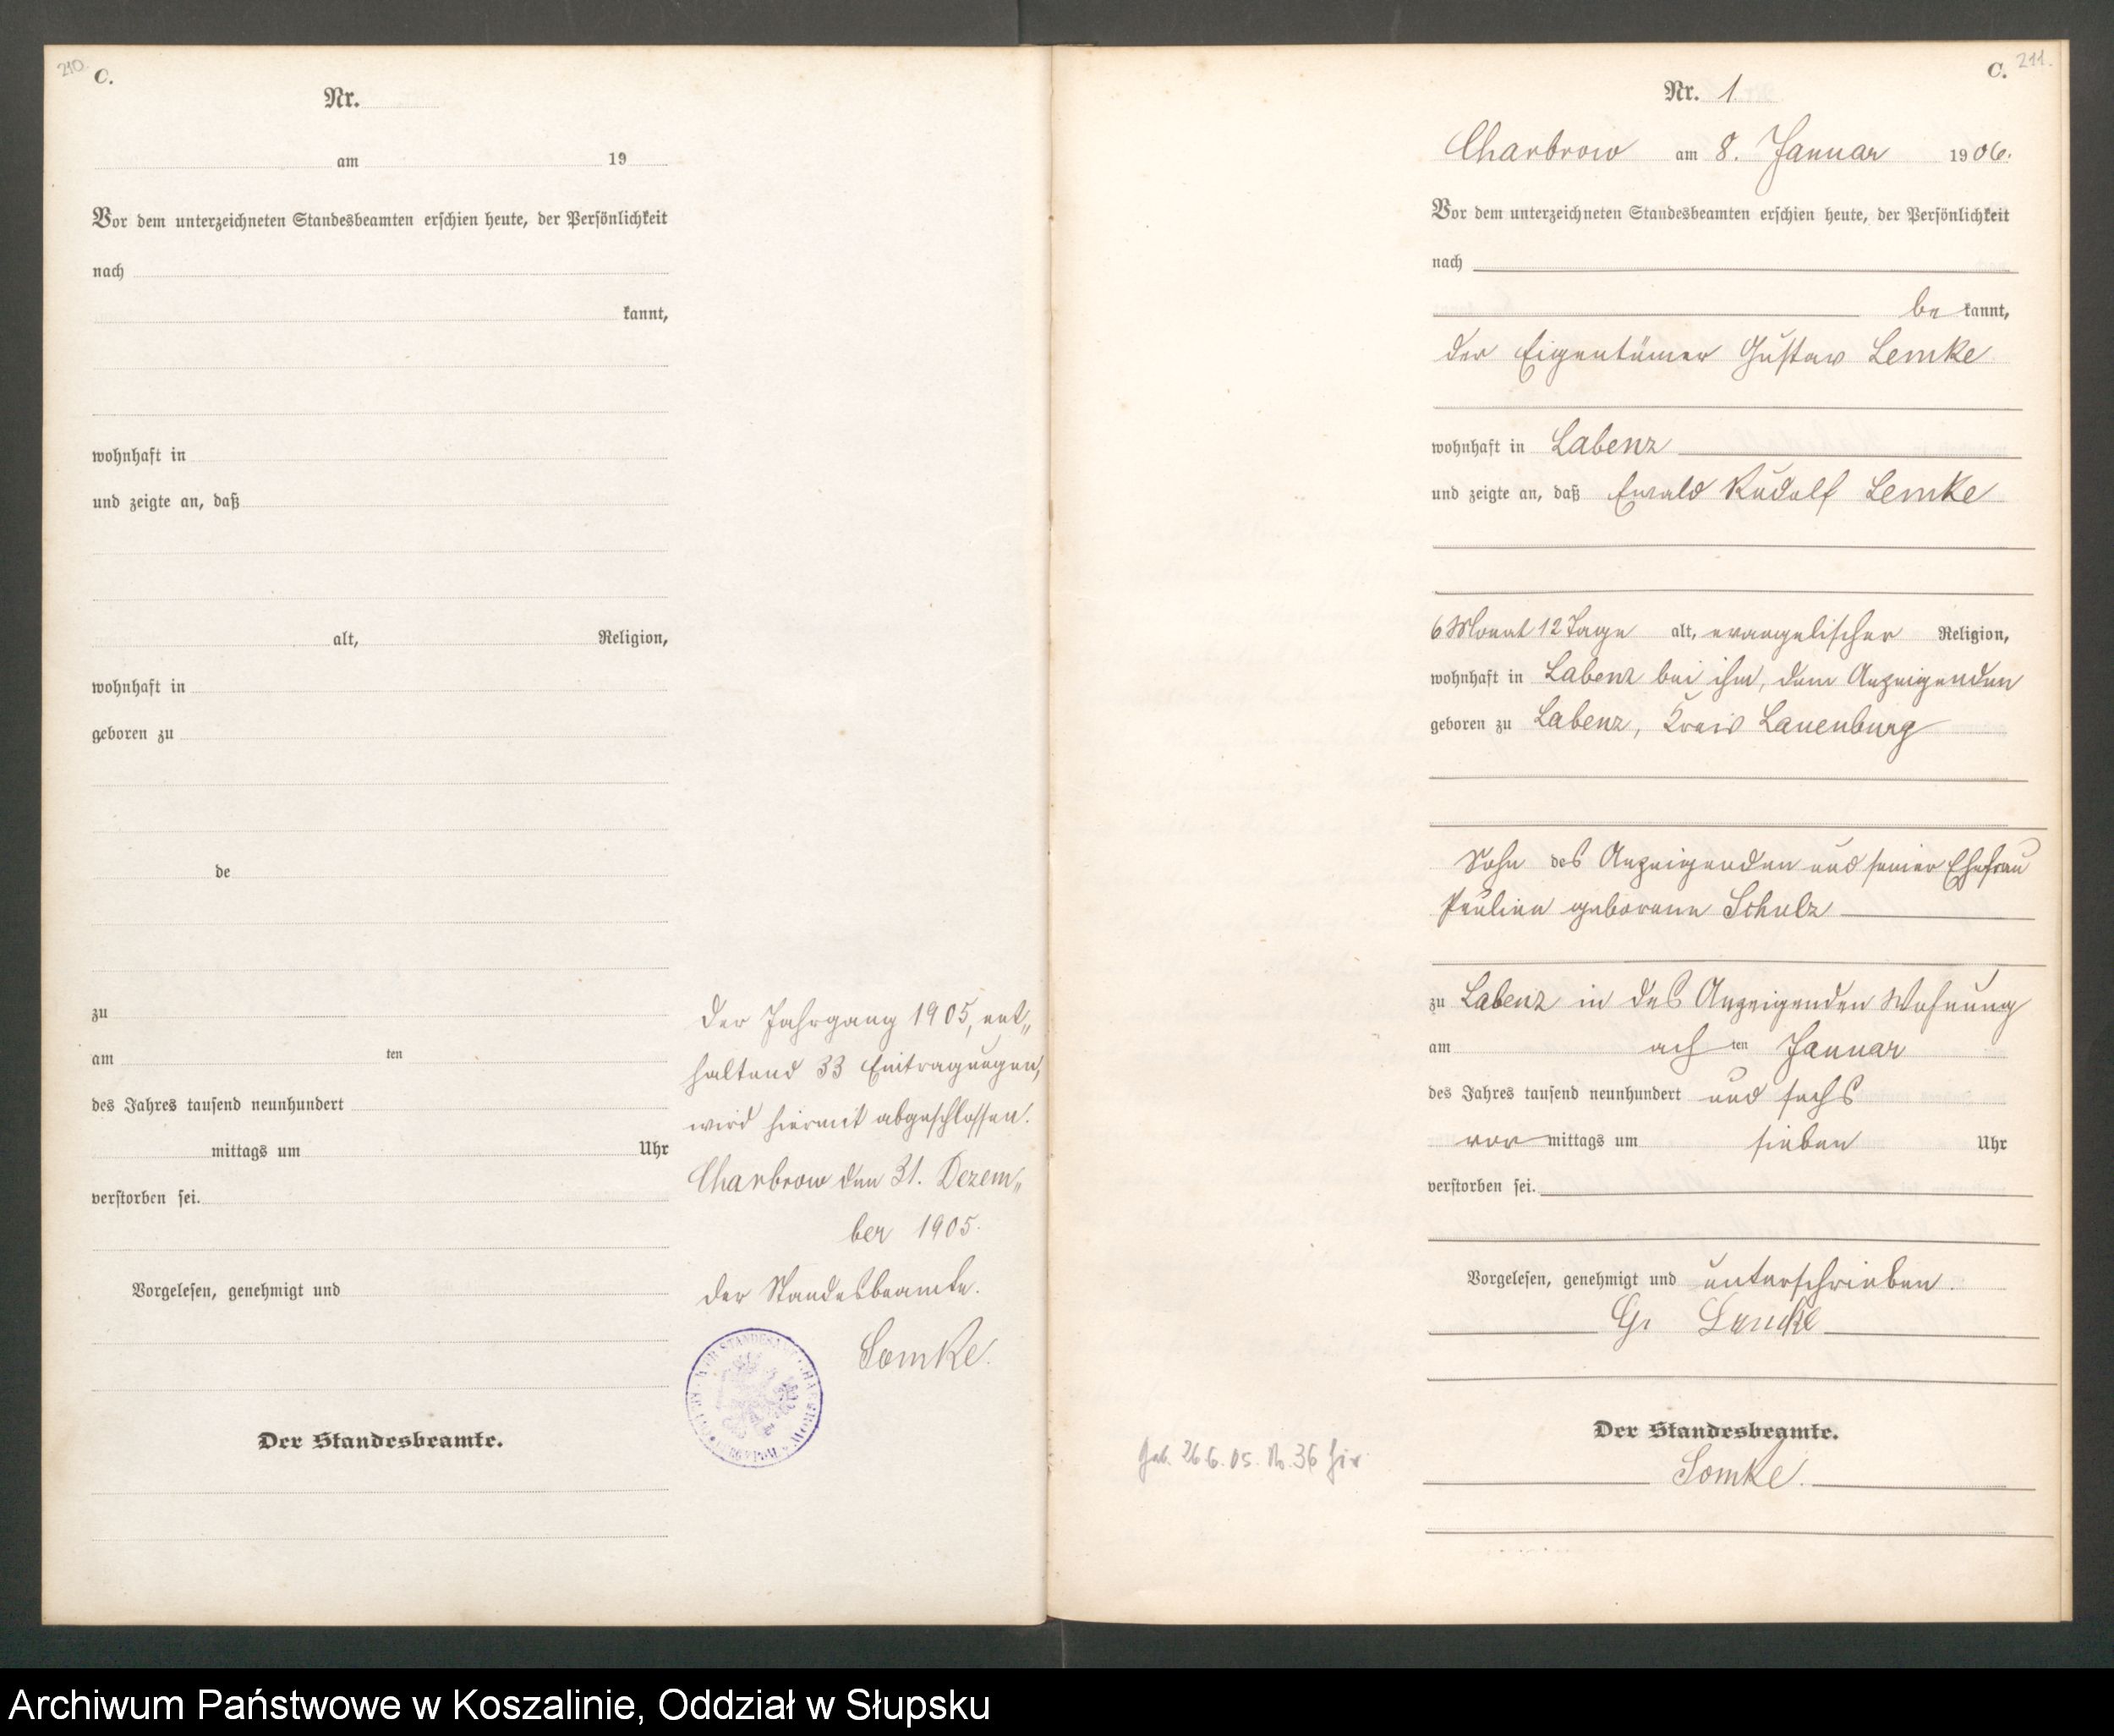 210.
C.
Nr.
am 19
Vor dem unterzeichneten Standesbeamten erschien heute, der Persönlichkeit
nach
kannt,
wohnhaft in
und zeigte an, daß
alt, Religion,
wohnhaft in
geboren zu
de
zu
am ten
des Jahres tausend neunhundert
mittags um Uhr
verstorben sei.
Vorgelesen, genehmigt und
Der Standesbeamte.
Der Jahrgang 1905, ent„
haltend 33 Eintragungen,
wird hiermit abgeschlossen.
Charbrow den 31. Dezem„
ber 1905.
Der Standesbeamte.
Somke.
C. 211.
Nr. 1
Charbrow am 8. Januar 1906.
Vor dem unterzeichneten Standesbeamten erschien heute, der Persönlichkeit
nach
be kannt,
der Eigentümer Gustav Lemke
wohnhaft in Labenz
und zeigte an, daß Ewald Rudolf Lemke
6 Monat 12 Tage alt, evangelischer Religion,
wohnhaft in Labenz bei ihm, dem Anzeigenden
geboren zu Labenz, Kreis Lauenburg
Sohn des Anzeigenden und seiner Ehefrau
Pauline geborene Schulz
zu Labenz in des Anzeigenden Wohnung
am ach ten Januar
des Jahres tausend neunhundert und sechs
vor mittags um sieben Uhr
verstorben sei.
Vorgelesen, genehmigt und unterschrieben.
G. Lemke
Der Standesbeamte.
Somke.
Geb. 26.6.05. No. 36 hier
Archiwum Państwowe w Koszalinie, Oddział w Słupsku